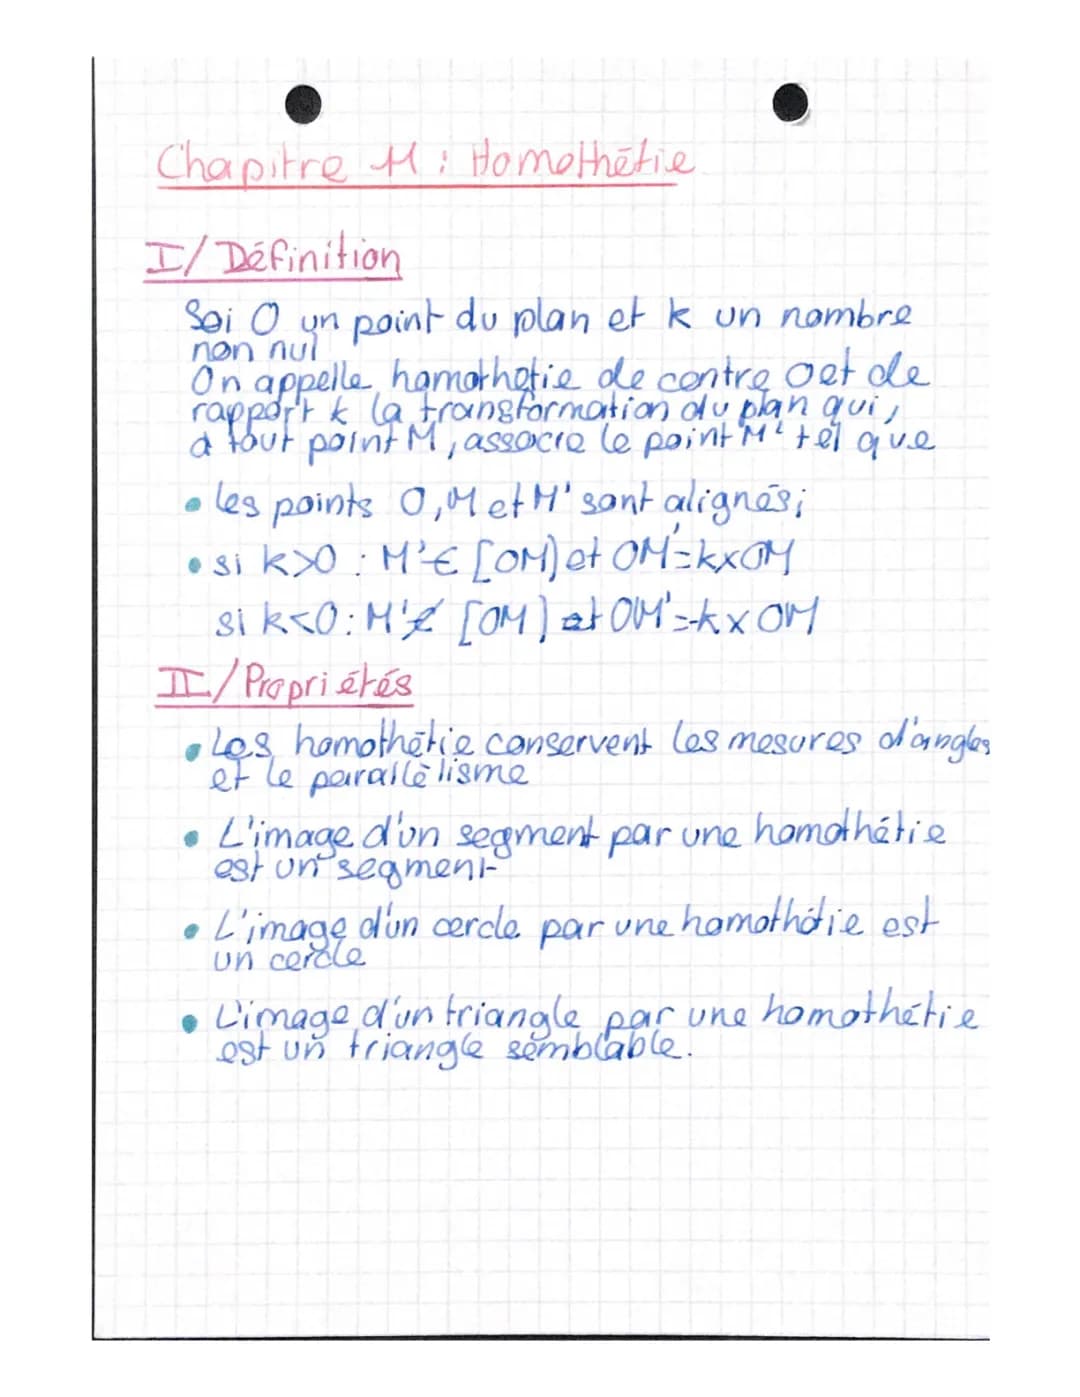 Chapitre 11 : Homothétie
I/ Définition
Soi O un point du plan et k un nombre
non nul
On appelle homothetie de centre O et de
rapport k la transformation du plan qui,
à tout point M, associe le point M' tel que
• les points O, M et M' sont alignés;
• si k>0 : M'∈ [OM) et OM'=k×OM
si k<0 : M'∉ [OM) et OM'=-k×OM
II/ Propriétés
• Les homothétie conservent les mesures d'angles
et le parallèlisme
• L'image d'un segment par une homothétie
est un segment
• L'image d'un cercle par une homothétie est
un cercle
• L'image d'un triangle par une homothétie
est un triangle semblable.